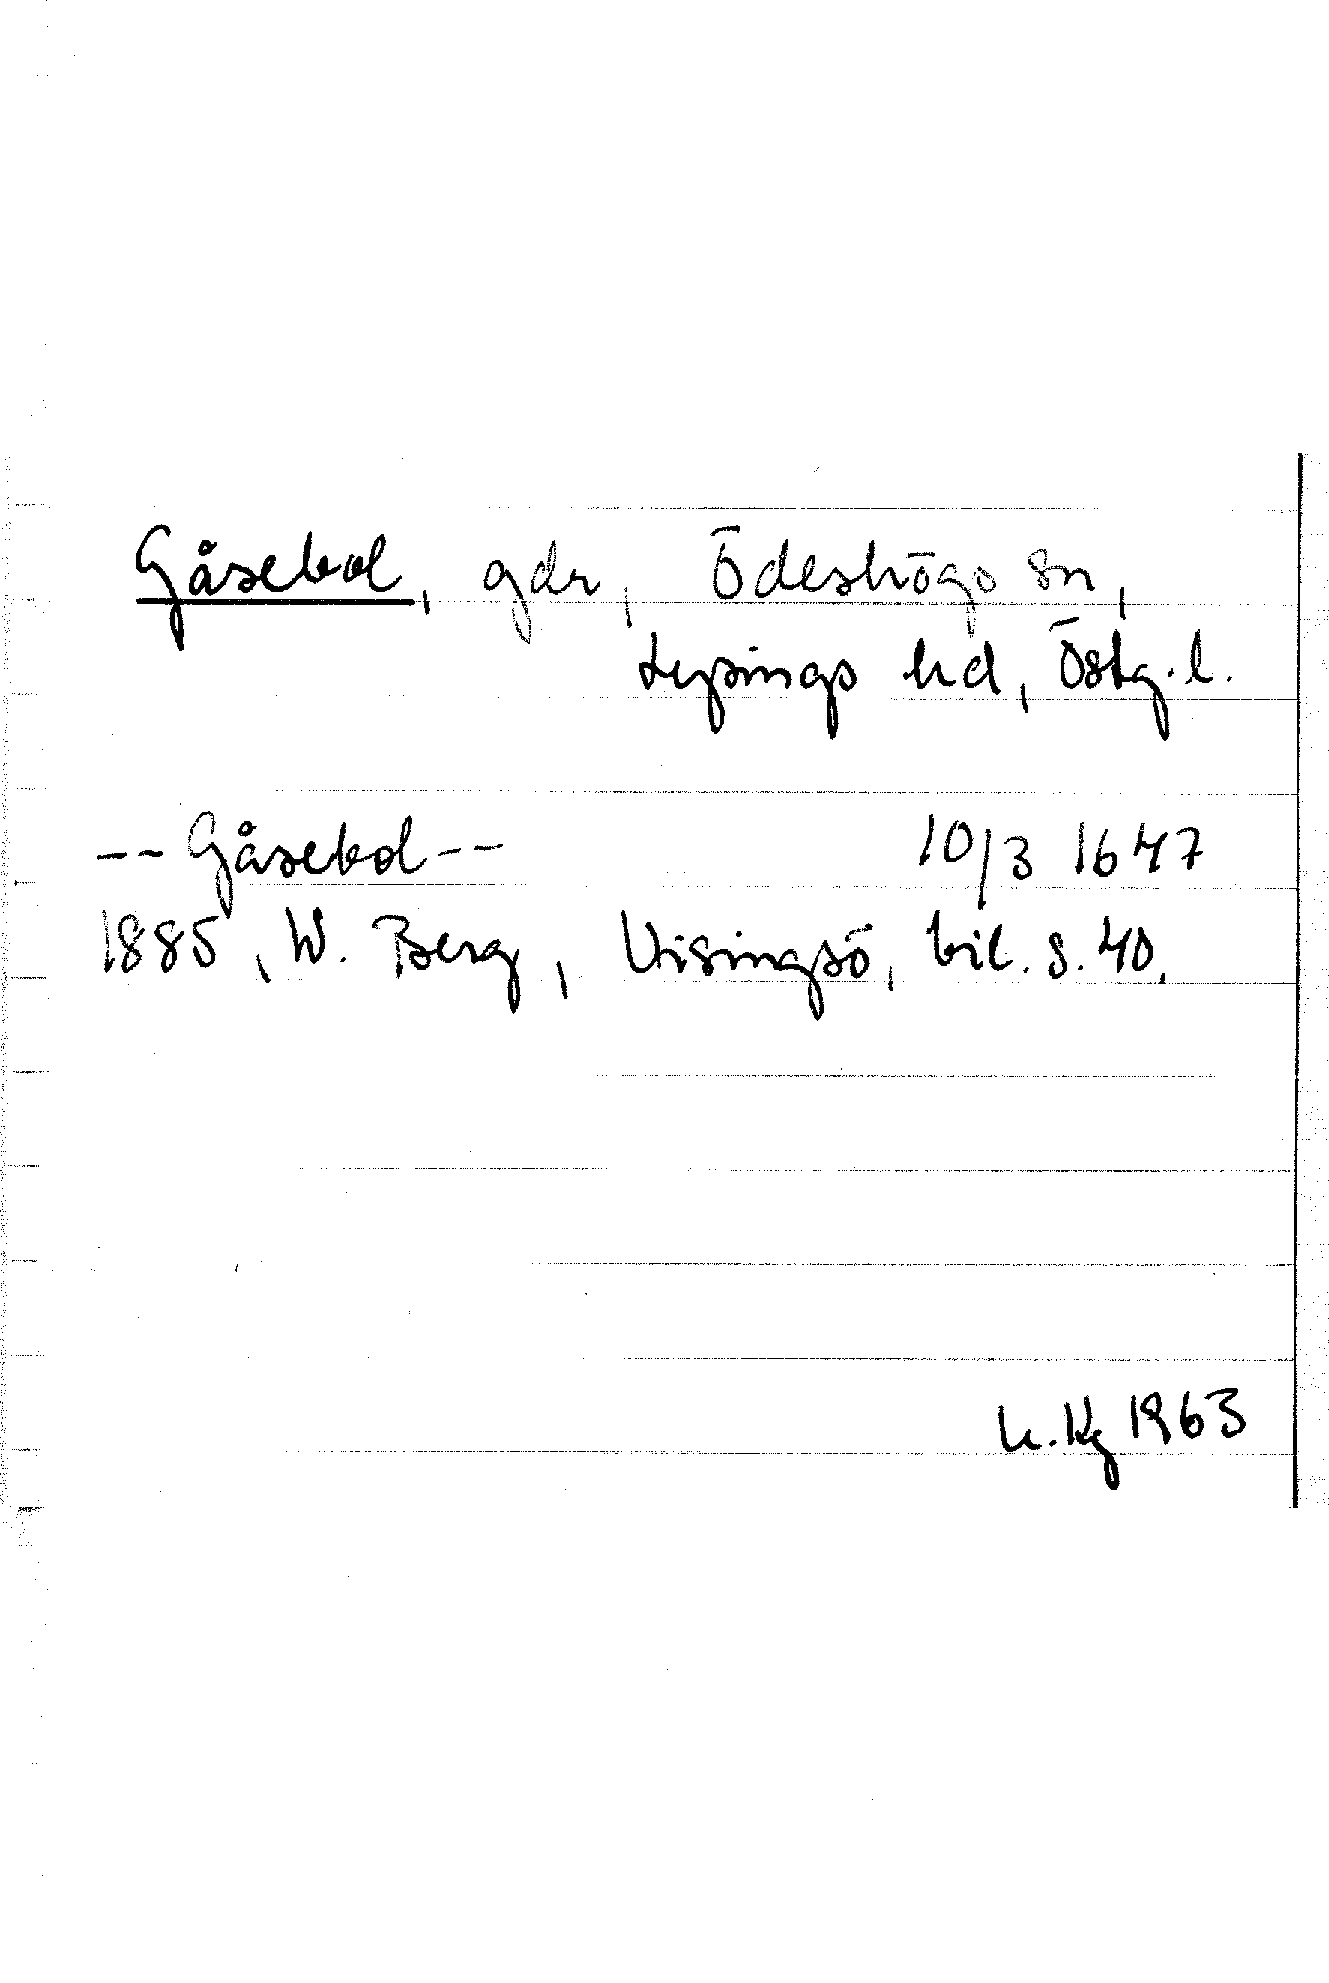 Gåsebol, gdr, Ödeshögs sn,
Lysings hd, Östg. l.
-- Gåsebol -- 10/3 1647
1885, W. Berg, Visingsö, bil. s. 40.
K. Kg 1963